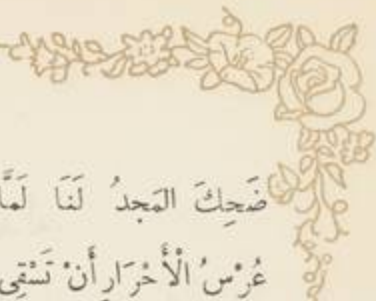 ضَحِكَ المَجدُ لَنَا لَمَّا
عُرْسُ الْأَحْرَارِ أَنْ تَسْقِى